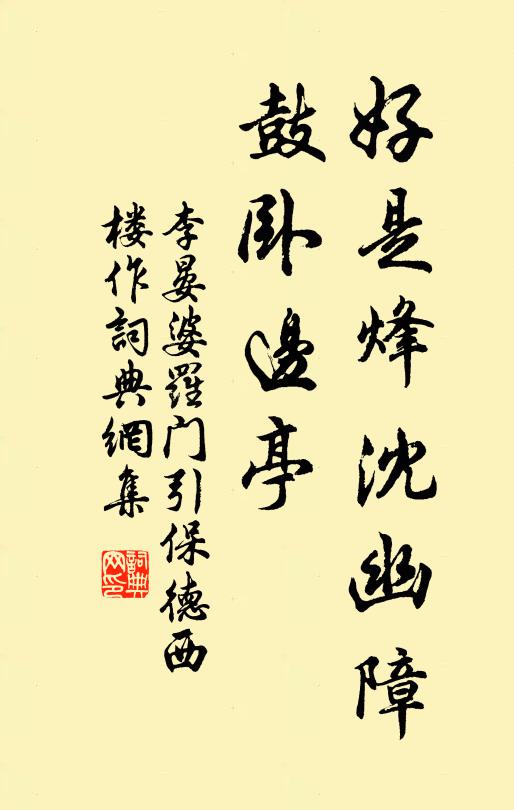 好是烽沈幽障
鼓卧邊亭
李晏婆羅门引保德西
楼作詞典網集
詞典网印